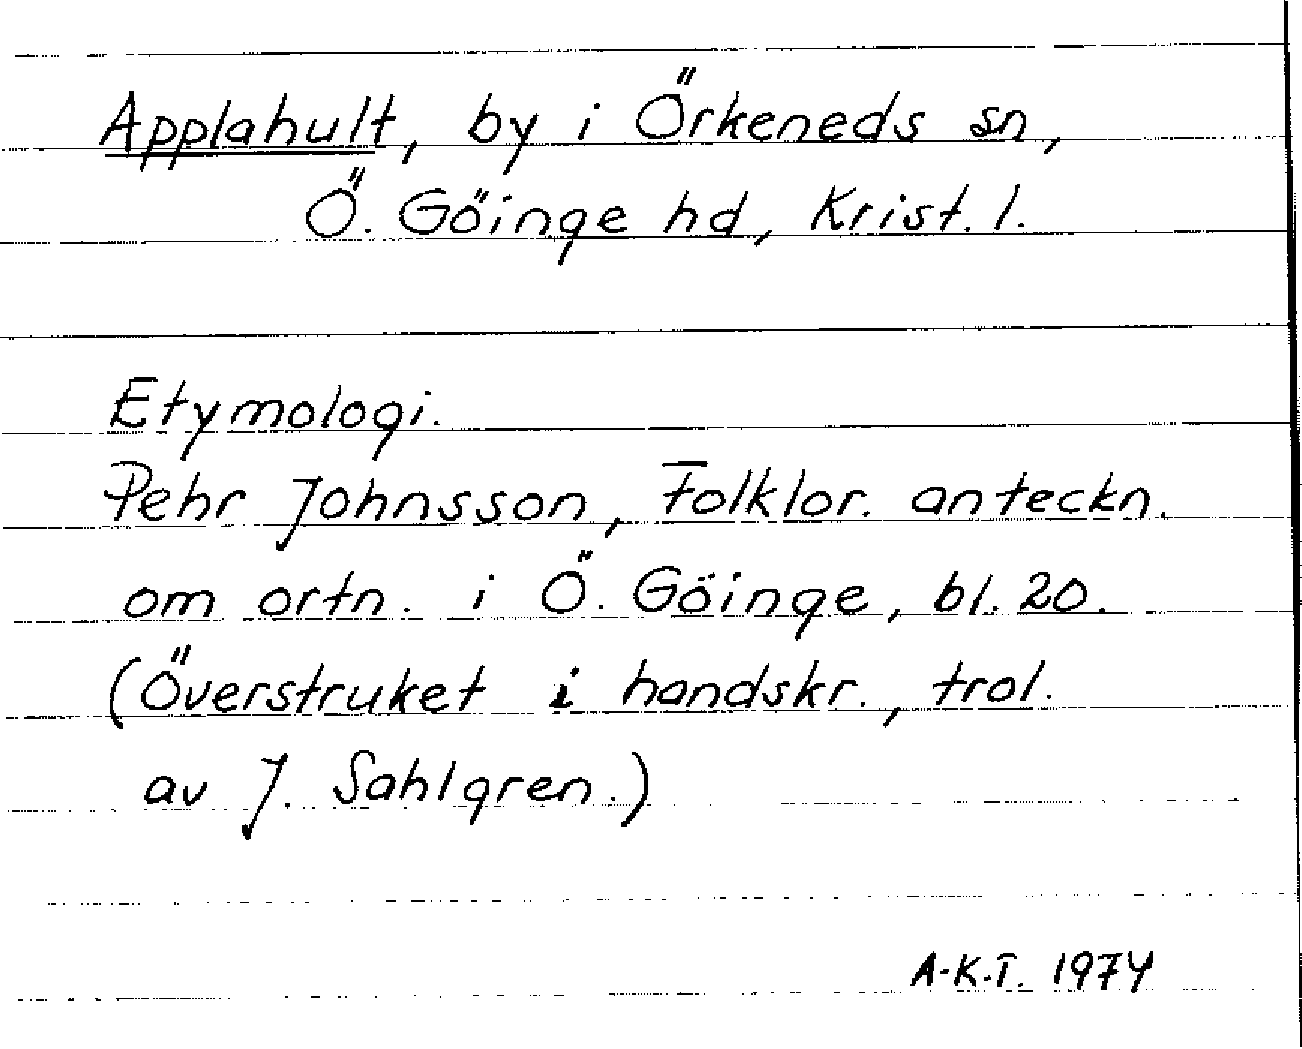 Applahult, by i Örkeneds sn,
Ö. Göinge hd, Krist. l.
Etymologi.
Pehr Johnsson, Folklor. anteckn.
om ortn. i Ö. Göinge, bl. 20.
(Överstruket i handskr., trol.
av J. Sahlgren.)
A-K.T. 1974